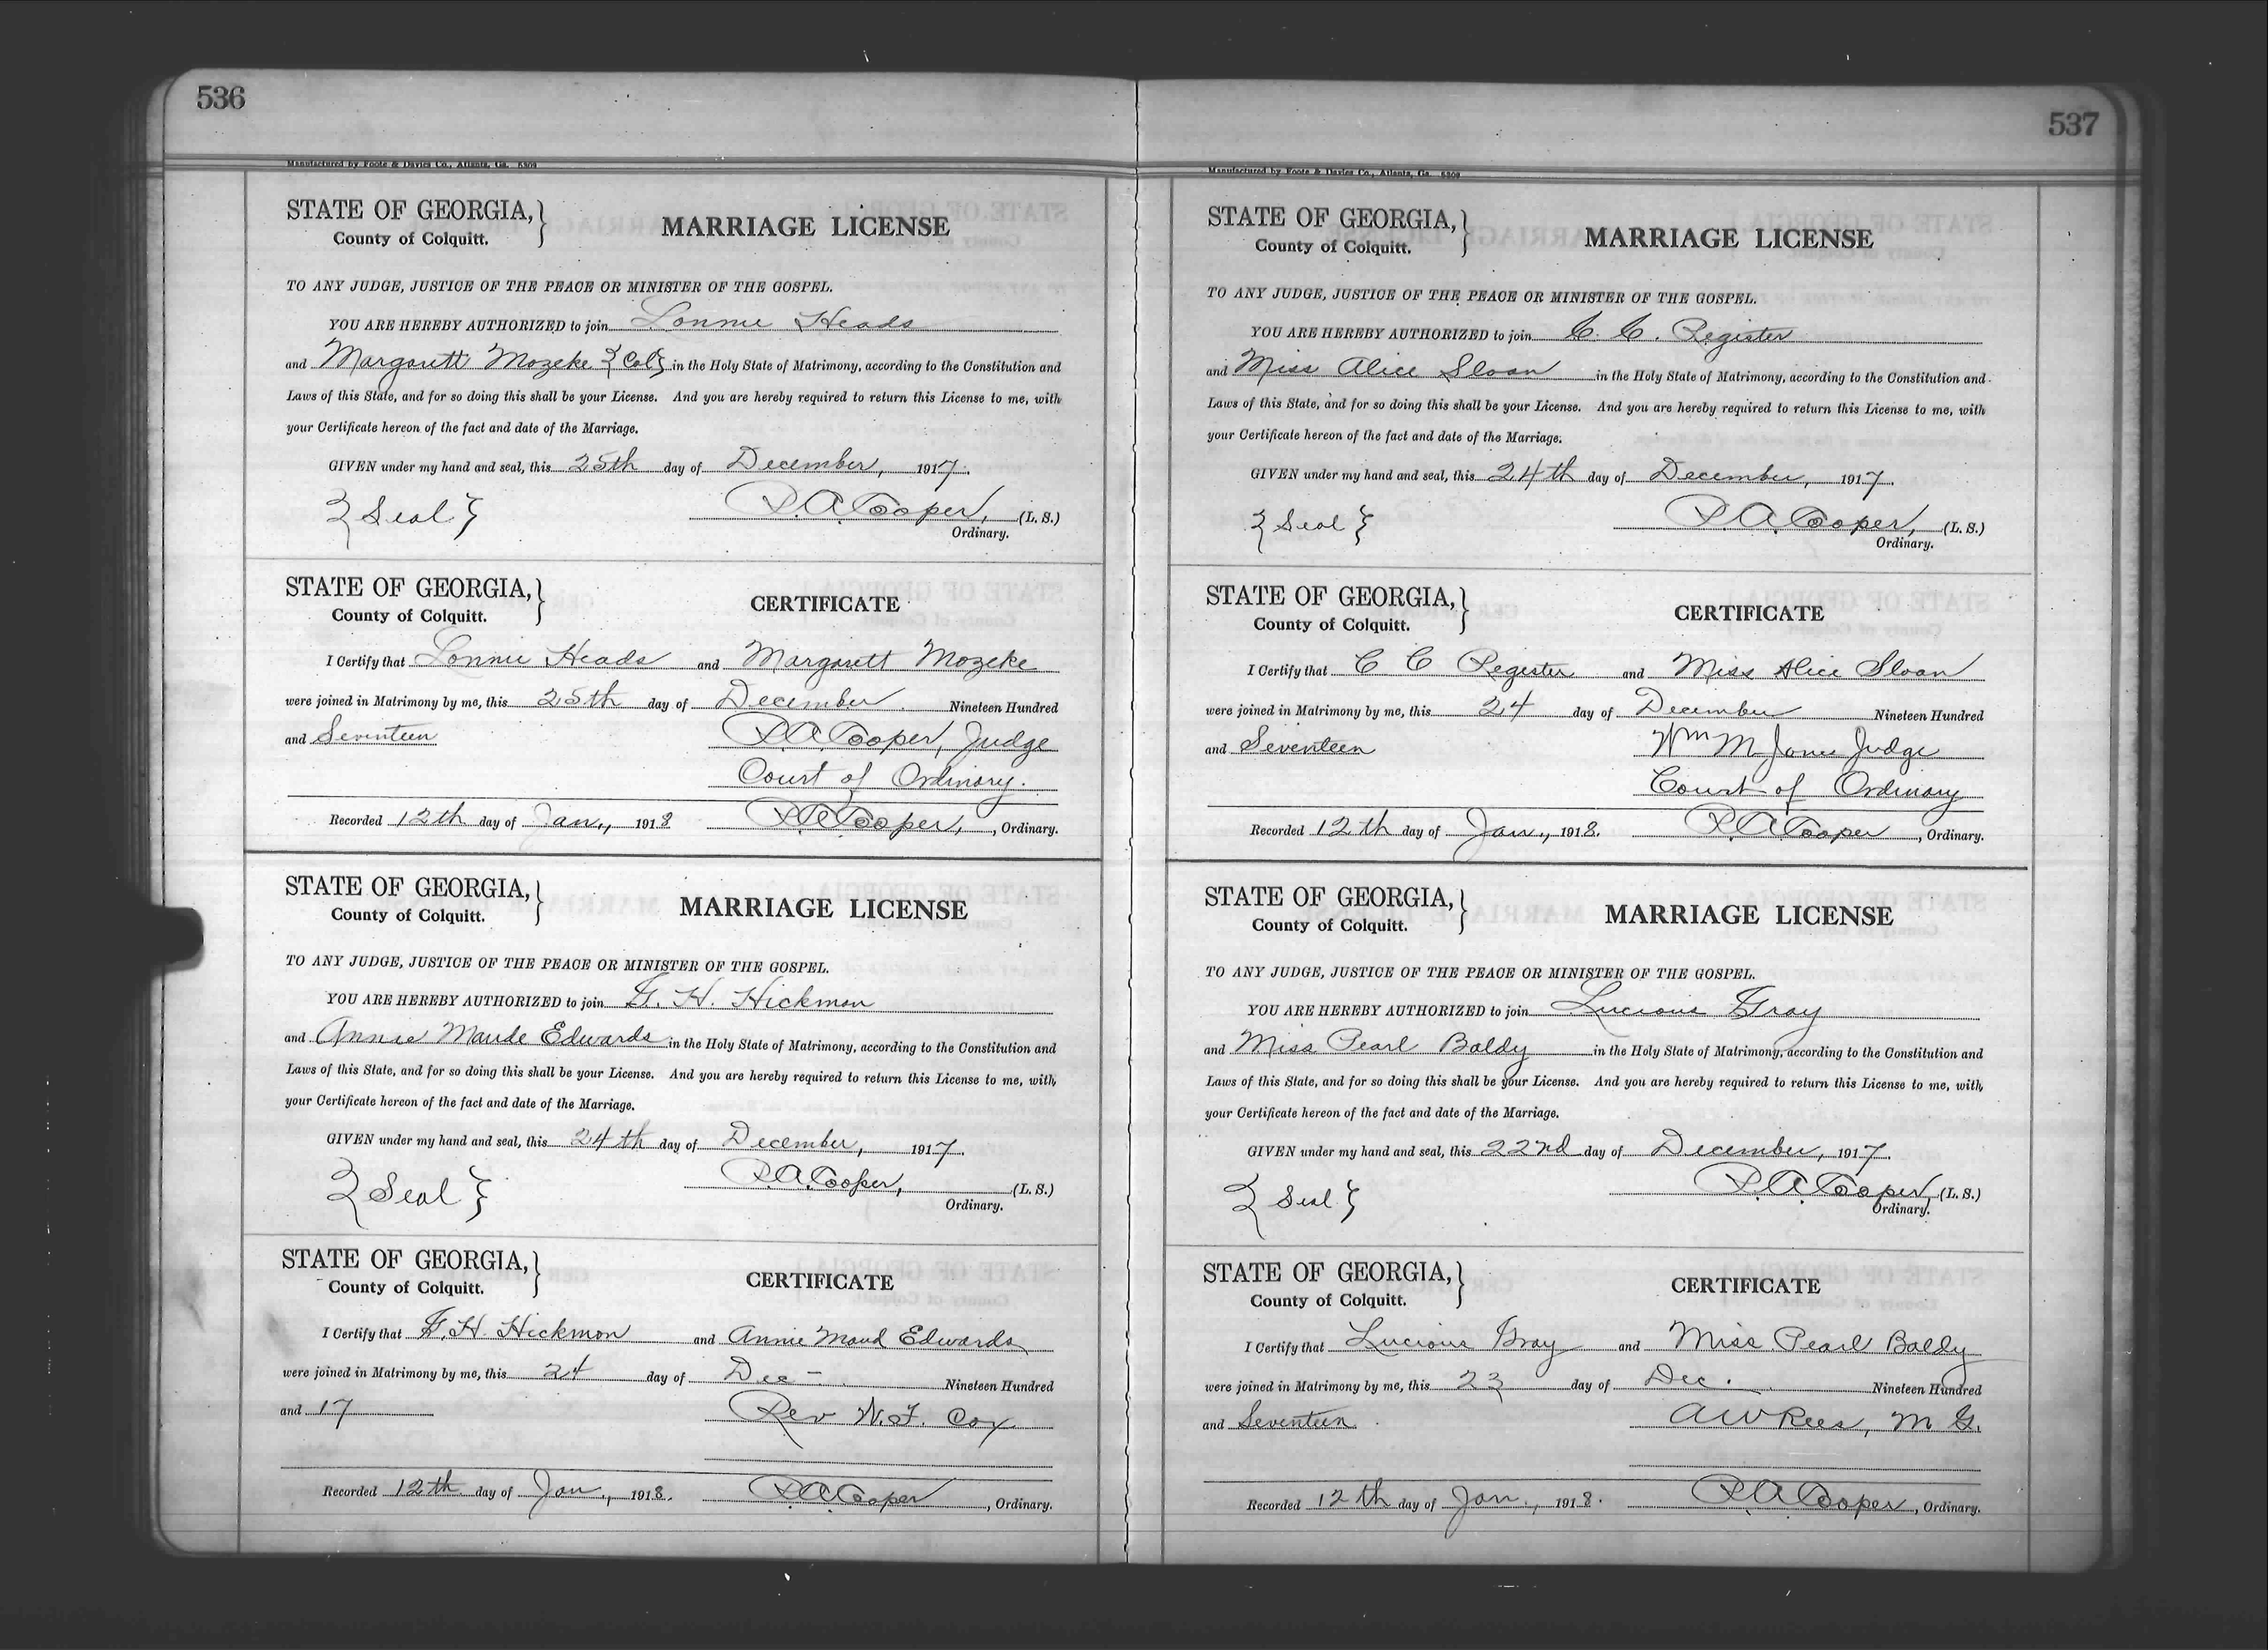 536
Manufactured by Foote & Davies Co., Atlanta, Ga. 5309
STATE OF GEORGIA,
County of Colquitt.
MARRIAGE LICENSE
TO ANY JUDGE, JUSTICE OF THE PEACE OR MINISTER OF THE GOSPEL.
YOU ARE HEREBY AUTHORIZED to join Lonnie Heads
and Margarett Mozeke {Col} in the Holy State of Matrimony, according to the Constitution and
Laws of this State, and for so doing this shall be your License. And you are hereby required to return this License to me, with
your Certificate hereon of the fact and date of the Marriage.
GIVEN under my hand and seal, this 25th day of December, 1917.
{Seal} P.A. Cooper, (L. S.)
Ordinary.
STATE OF GEORGIA,
County of Colquitt.
CERTIFICATE
I Certify that Lonnie Heads and Margarett Mozeke
were joined in Matrimony by me, this 25th day of December. Nineteen Hundred
and Seventeen P.A. Cooper, Judge
Court of Ordinary.
Recorded 12th day of Jan., 1918 P.A. Cooper, , Ordinary.
STATE OF GEORGIA,
County of Colquitt.
MARRIAGE LICENSE
TO ANY JUDGE, JUSTICE OF THE PEACE OR MINISTER OF THE GOSPEL.
YOU ARE HEREBY AUTHORIZED to join G. H. Hickmon
and Annie Maude Edwards in the Holy State of Matrimony, according to the Constitution and
Laws of this State, and for so doing this shall be your License. And you are hereby required to return this License to me, with
your Certificate hereon of the fact and date of the Marriage.
GIVEN under my hand and seal, this 24th day of December, 1917.
{Seal} P.A. Cooper, (L. S.)
Ordinary.
STATE OF GEORGIA,
County of Colquitt.
CERTIFICATE
I Certify that G. H. Hickmon and Annie Maud Edwards
were joined in Matrimony by me, this 24 day of Dec - . Nineteen Hundred
and 17 Rev W. F. Cox
Recorded 12th day of Jan., 1918. P.A. Cooper , Ordinary.
537
Manufactured by Foote & Davies Co., Atlanta, Ga. 5309
STATE OF GEORGIA,
County of Colquitt.
MARRIAGE LICENSE
TO ANY JUDGE, JUSTICE OF THE PEACE OR MINISTER OF THE GOSPEL.
YOU ARE HEREBY AUTHORIZED to join C. C. Register
and Miss Alice Sloan in the Holy State of Matrimony, according to the Constitution and
Laws of this State, and for so doing this shall be your License. And you are hereby required to return this License to me, with
your Certificate hereon of the fact and date of the Marriage.
GIVEN under my hand and seal, this 24th day of December, 1917.
{Seal} P.A. Cooper, (L. S.)
Ordinary.
STATE OF GEORGIA,
County of Colquitt.
CERTIFICATE
I Certify that C C Register and Miss Alice Sloan
were joined in Matrimony by me, this 24 day of December Nineteen Hundred
and Seventeen Wm M Jones Judge
Court of Ordinary
Recorded 12th day of Jan., 1918. P.A. Cooper , Ordinary.
STATE OF GEORGIA,
County of Colquitt.
MARRIAGE LICENSE
TO ANY JUDGE, JUSTICE OF THE PEACE OR MINISTER OF THE GOSPEL.
YOU ARE HEREBY AUTHORIZED to join Lucious Gray
and Miss Pearl Baldy in the Holy State of Matrimony, according to the Constitution and
Laws of this State, and for so doing this shall be your License. And you are hereby required to return this License to me, with
your Certificate hereon of the fact and date of the Marriage.
GIVEN under my hand and seal, this 22nd day of December, 1917.
{Seal} P.A. Cooper, (L. S.)
Ordinary.
STATE OF GEORGIA,
County of Colquitt.
CERTIFICATE
I Certify that Lucious Gray and Miss Pearl Baldy
were joined in Matrimony by me, this 23 day of Dec. Nineteen Hundred
and Seventeen. A W Rees, M G.
Recorded 12th day of Jan., 1918. P.A. Cooper , Ordinary.